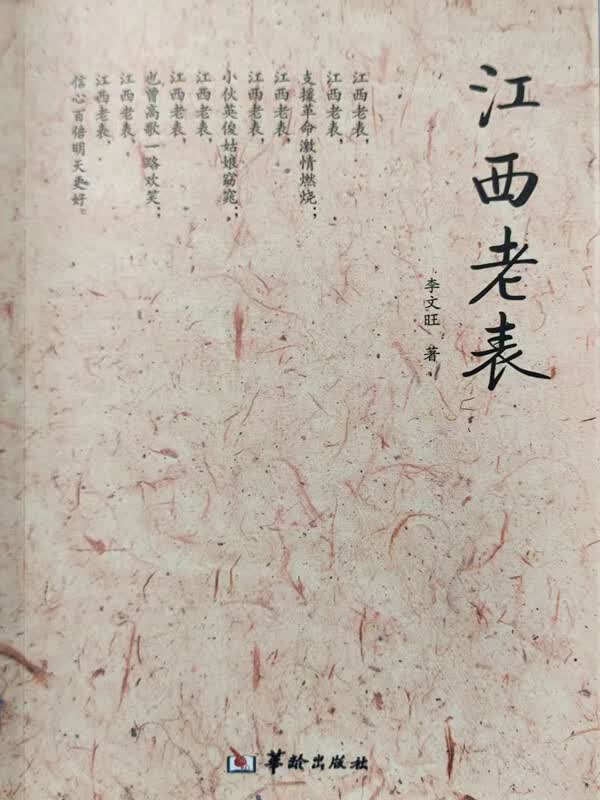 江西老表
李文旺 著
江西老表，
江西老表，
支援革命激情燃烧；
江西老表，
江西老表，
小伙英俊姑娘窈窕；
江西老表，
江西老表，
也曾高歌一路欢笑；
江西老表，
江西老表，
信心百倍明天更好。
华龄出版社